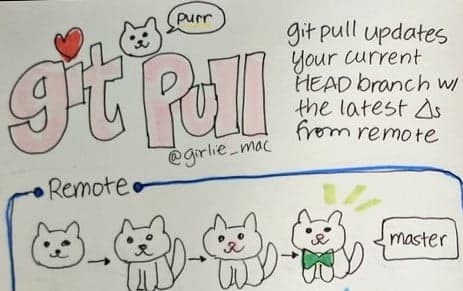 purr
git Pull
@girlie_mac
git pull updates
your current
HEAD branch w/
the latest Δs
from remote
Remote
master